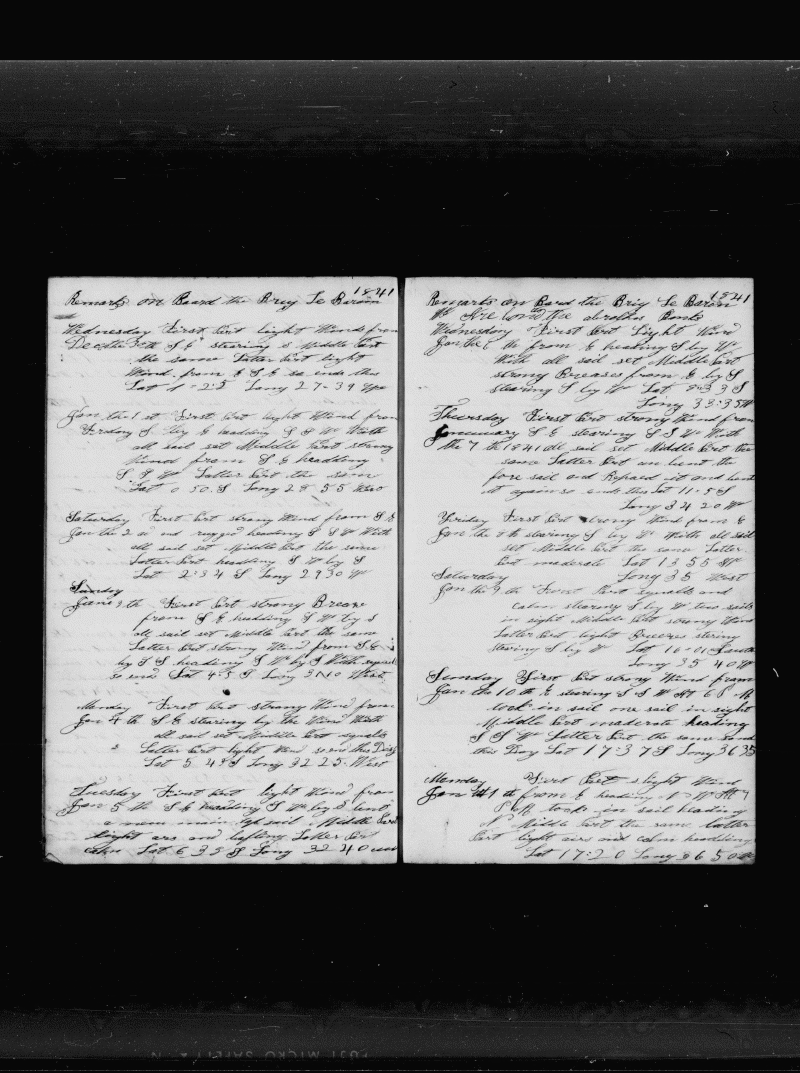 1841
Remarks on Board the Brig Le Baron
Wednesday First Part light Winds from
Dec the 30th S E stearing S Middle Part
the same Latter Part light
Wind from E S E so ends this
Lat 1-25 Long 27-39 W
Jan the 1 st First Part light Wind from
S heading S S W With
all sail set Middle Part strong
Wind from S E headding
S S W Latter Part the same
Lat 0 50 S Long 28 55 West
Saturday First Part strong Wind from S E
Jan the 2 and rugged heading S S W With
all sail set Middle Part the same
Latter Part headding S W by S
Lat 2:34 S Long 29 30 W
Sunday
Jan 3 th First Part strong Breeze
from S E headding S W by S
all sail set Middle Part the same
Latter Part strong Wind from S E
by S heading S W by S With squals
so end Lat 4-5 S Long 31 10 West
Monday First Part strong Wind from
Jan 4 th S E stearing by the Wind With
all sail set Middle Part squals
Latter Part light Wind so end this Day
Lat 5 48 S Long 32 25 West
Tuesday First Part light Wind from
Jan 5 th S E headding S W by S bent
a new main top sail Middle Part
light ars and Latter Part
calm Lat 6 35 S Long 32 40 west
1841
Remarks on Board the Brig Le Baron
Wednesday First Part Light Wind
Jan the 6 th from E heading S by W
With all sail set Middle Part
strong Breases from E by S
stearing S by W Lat 8:33 S
Long 33:35 W
Thursday First Part strong Wind from
January S E stearing S S W With
the 7 th 1841 all sail set Middle Part the
same Latter Part un bent the
fore sail and Repared it and bent
it again so ends this Lat 11-5 S
Long 34 20 W
Friday First Part strong Wind from E
Jan the 8 th stearing S by W With all sail
set Middle Part the same Latter
Part moderate Lat 13 55 S
Saturday Long 35 West
Jan the 9 th First Part squals and
calm stearing S by W two sails
in sight Middle Part strong Wind
Latter Part light Breezes stering
S by W Lat 16-01 South
Long 35 40 W
Sunday First Part strong Wind from
Jan the 10 th E stearing S S W At 6 P M
took in sail one sail in sight
Middle Part moderate heading
S S W Latter Part the same ends
this Day Lat 17:37 S Long 36 35
Monday First Part slight Wind
Jan 11 th from E heading W At 7
P M took in sail heading
N Middle Part the same latter
Part light airs and calm headding
Lat 17:20 Long 36 50 W